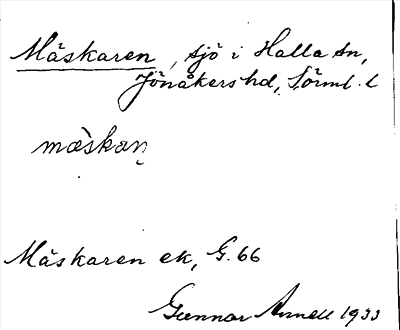 Mäskaren, sjö i Halla sn,
Jönåkers hd, Sörml. l
Mäskaren ek, G. 66
Gunnar Annell 1933